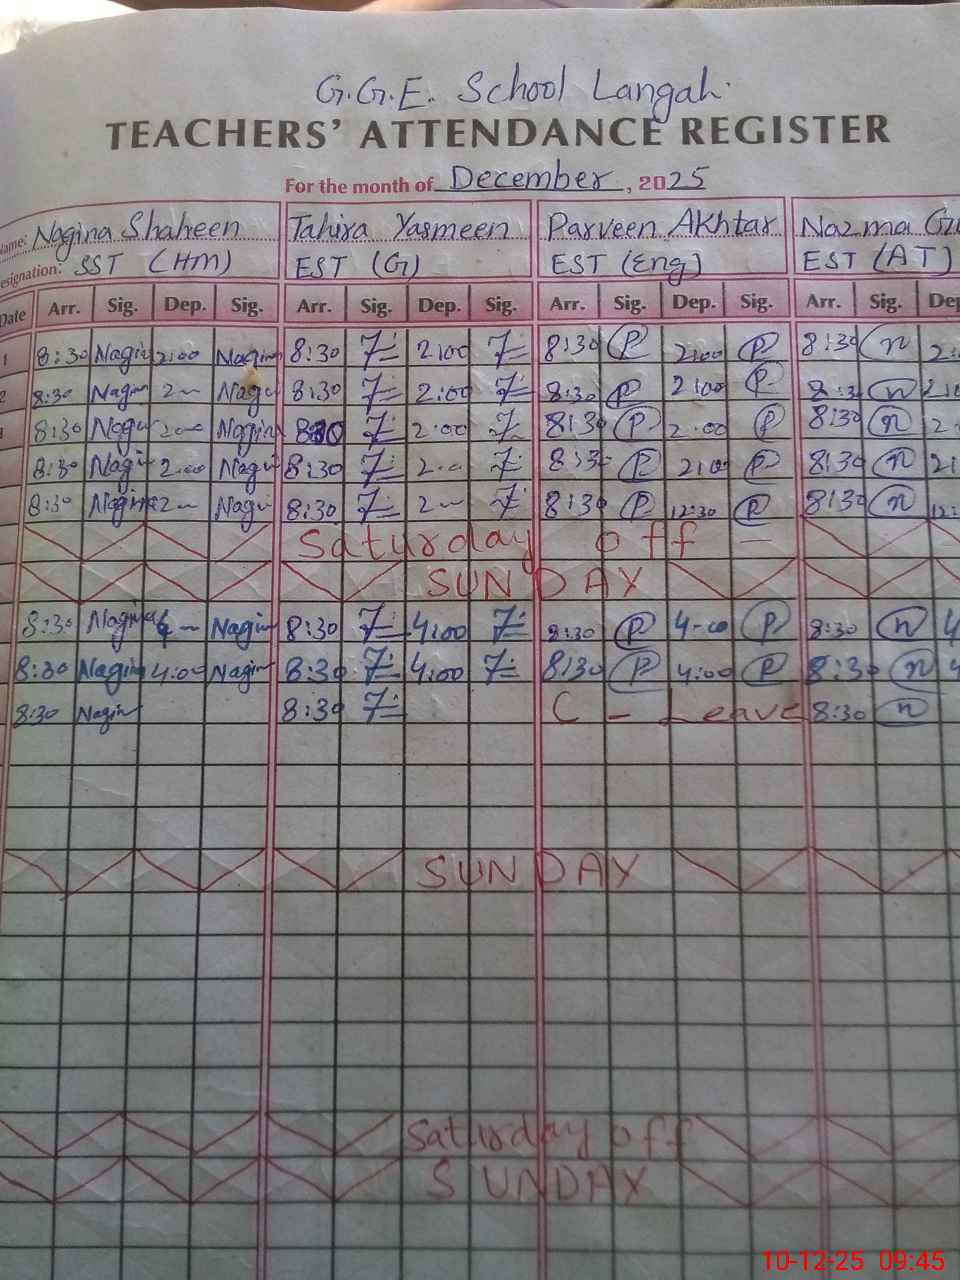 G.G.E. School Langah.
TEACHERS' ATTENDANCE REGISTER
For the month of December, 2025
Name: Nagina Shaheen Tahira Yasmeen Parveen Akhtar Nazma
Designation: SST (HM) EST (G) EST (Eng) EST (AT)
Date Arr. Sig. Dep. Sig. Arr. Sig. Dep. Sig. Arr. Sig. Dep. Sig. Arr. Sig. Dep
1 8:30 Nagin 2:00 Nagin 8:30 2:00 8:30 P 2:00 P 8:30 n 2:
2 8:30 Nagin 2 — Nagi 8:30 2:00 8:30 P 2:00 P 8:3 n 2:0
8:30 Nagi 2:00 Nagin 8:30 2:00 8:30 P 2:00 P 8:30 n 2.
8:30 Nagi 2:00 Nagi 8:30 2:0 8:3 P 2:00 P 8:30 n 2:
8:30 Nagina 2 — Nagi 8:30 2 — 8:30 P 12:30 P 8:30 n 12:
Saturday off —
SUNDAY
8:30 Nagina 4 — Nagin 8:30 4:00 8:30 P 4-00 P 8:30 n 4
8:30 Nagin 4:00 Nagin 8:30 4:00 8:30 P 4:00 P 8:30 n 4
8:30 Nagin 8:30 C - Leave 8:30 n
SUNDAY
Saturday off
SUNDAY
10-12-25 09:45